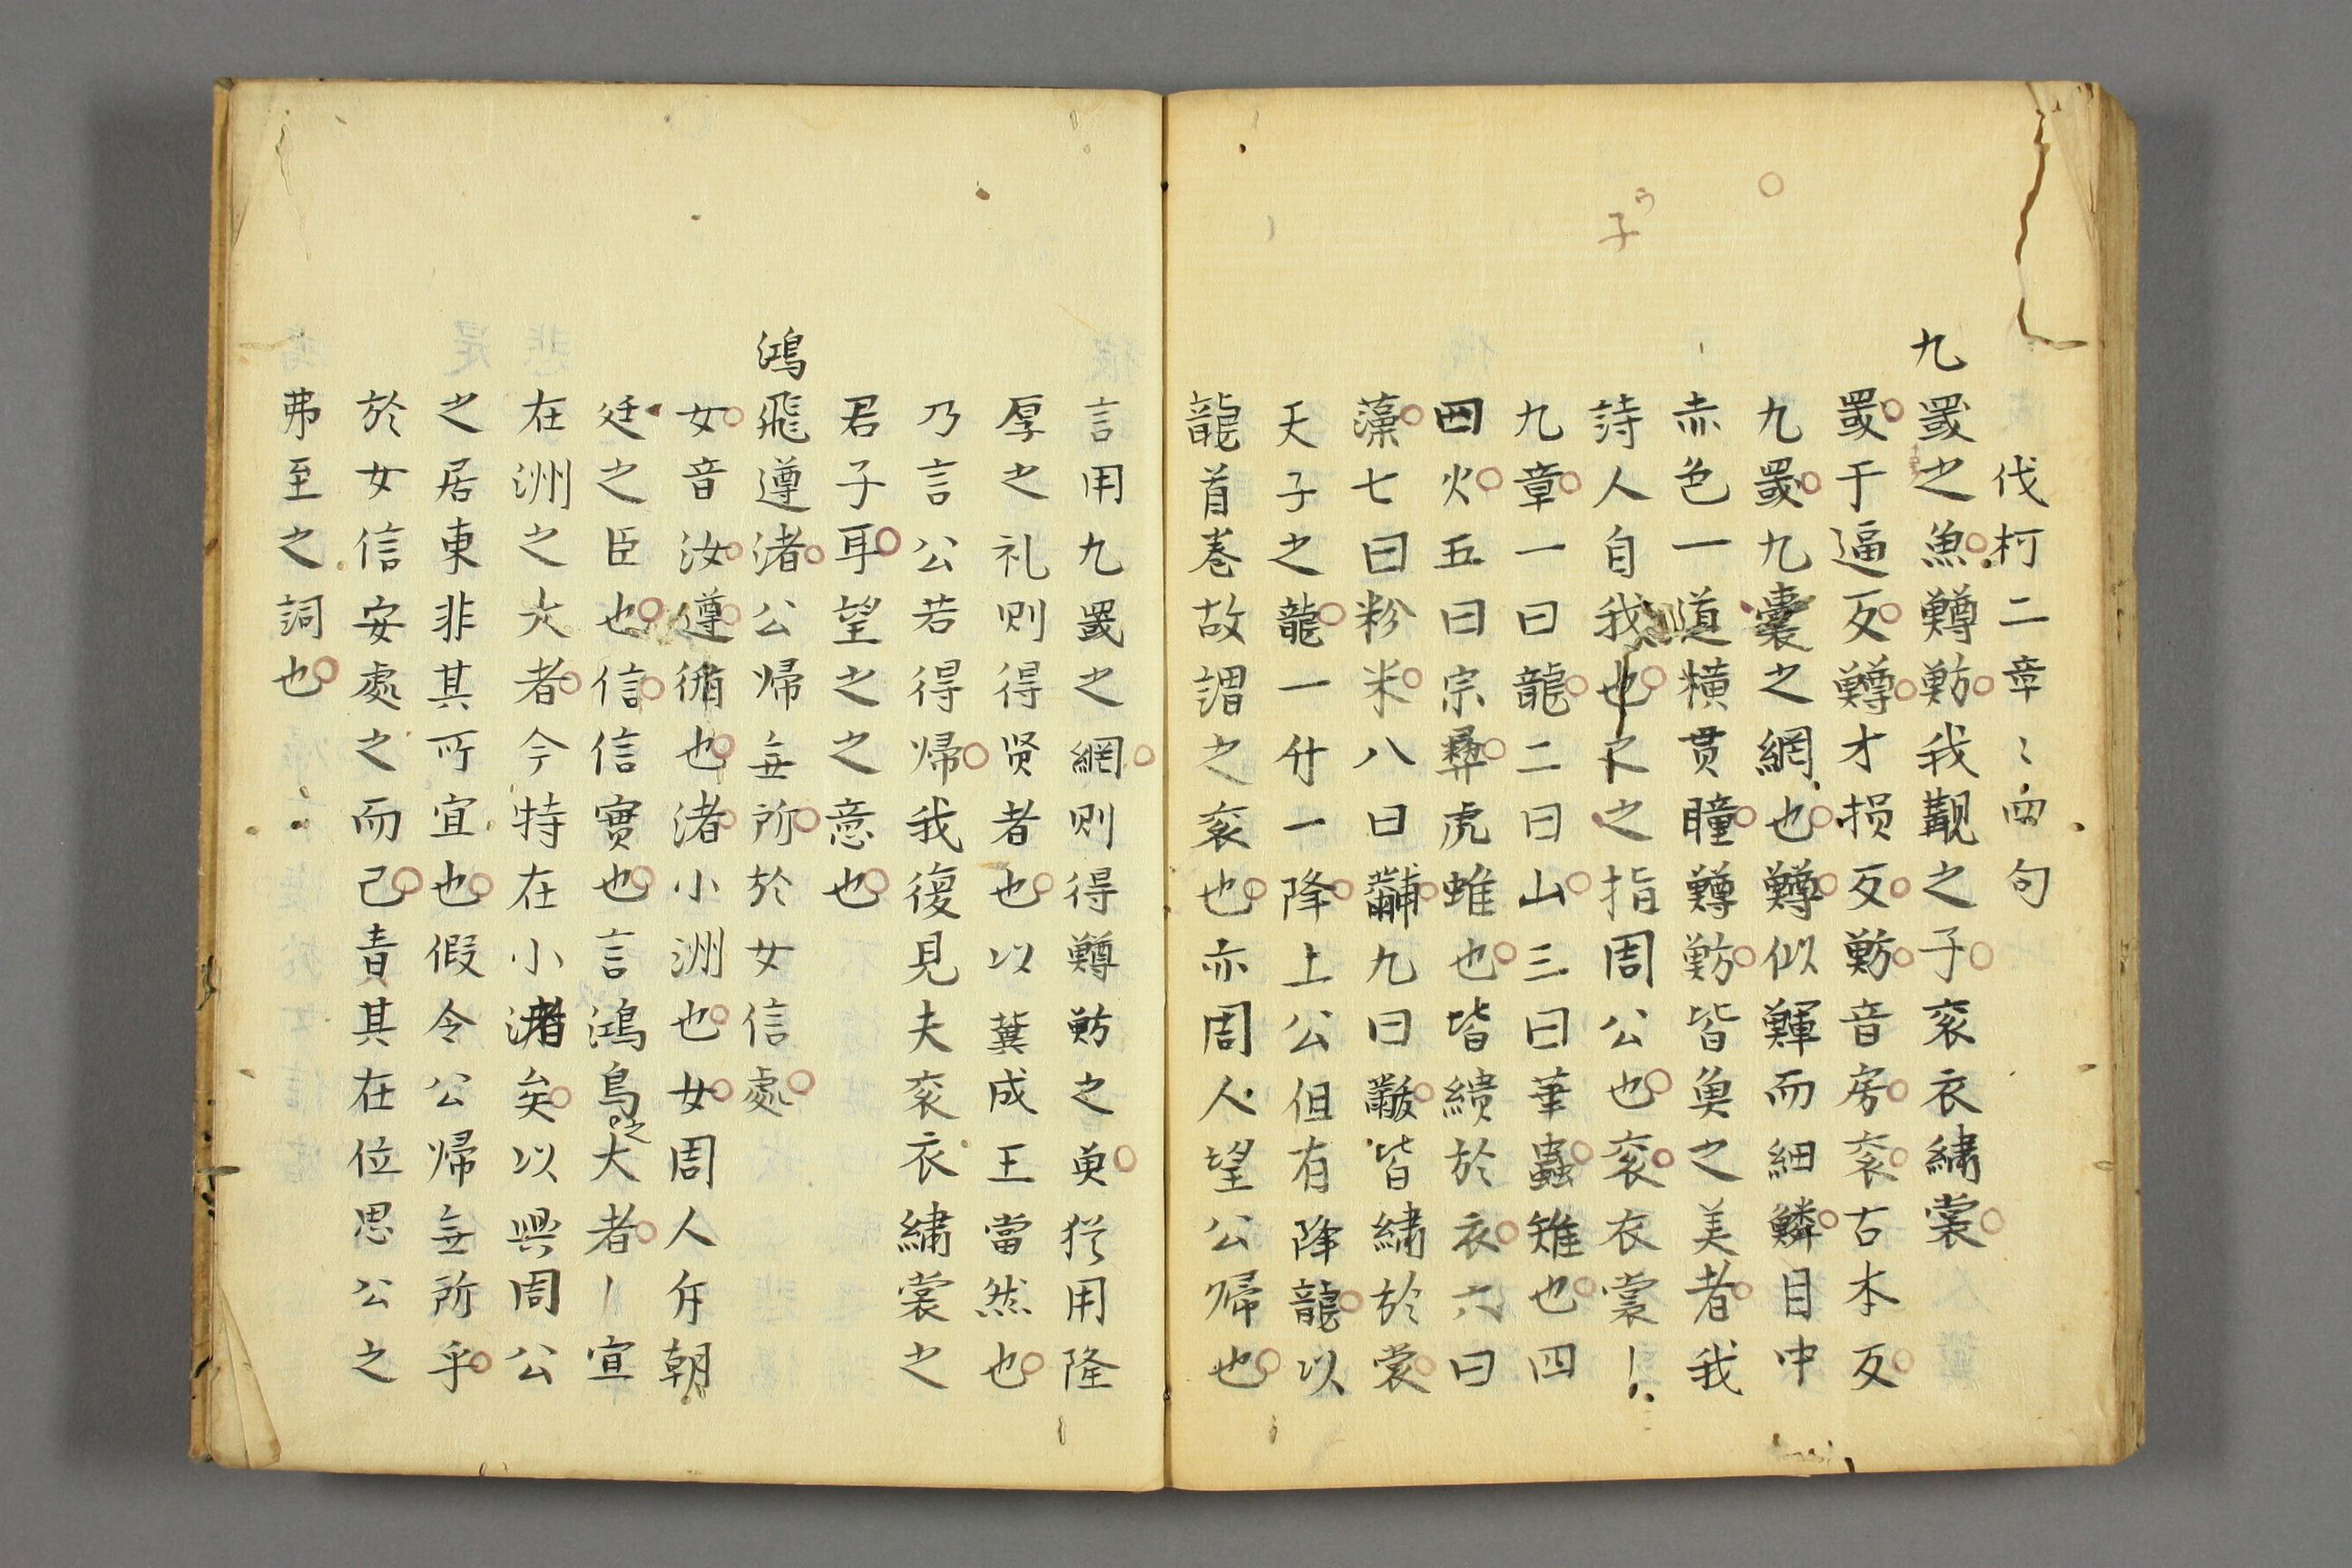 伐柯二章〻四句
九罭之魚鱒魴我覯之子衮衣繡裳
罭于逼反鱒才損反魴音房衮古本反
九罭九囊之網也鱒似鯶而細鱗目中
赤色一道横贯瞳鱒魴皆魚之美者我
詩人自我也之之指周公也衮衣裳
九章一曰龍二曰山三曰華蟲雉也四
曰火五曰宗彝虎蜼也皆繢於衣六曰
藻七曰粉米八曰黼九曰黻皆繡於裳
天子之龍一升一降上公但有降龍以
龍首卷故謂之衮也亦周人望公歸也
言用九罭之網則得鱒魴之魚猶用隆
厚之礼則得贤者也以冀成王當然也
乃言公若得帰我復見夫衮衣繡裳之
君子耳望之之意也
鴻飛遵渚公帰無所於女信處
女音汝遵循也渚小洲也女周人斥朝
廷之臣也信信信實也言鴻鳥之大者宜
在洲之大者今特在小渚矣以興周公
之居東非其所宜也假令公帰無所乎
於女信安處之而已責其在位思公之
弗至之詞也
子